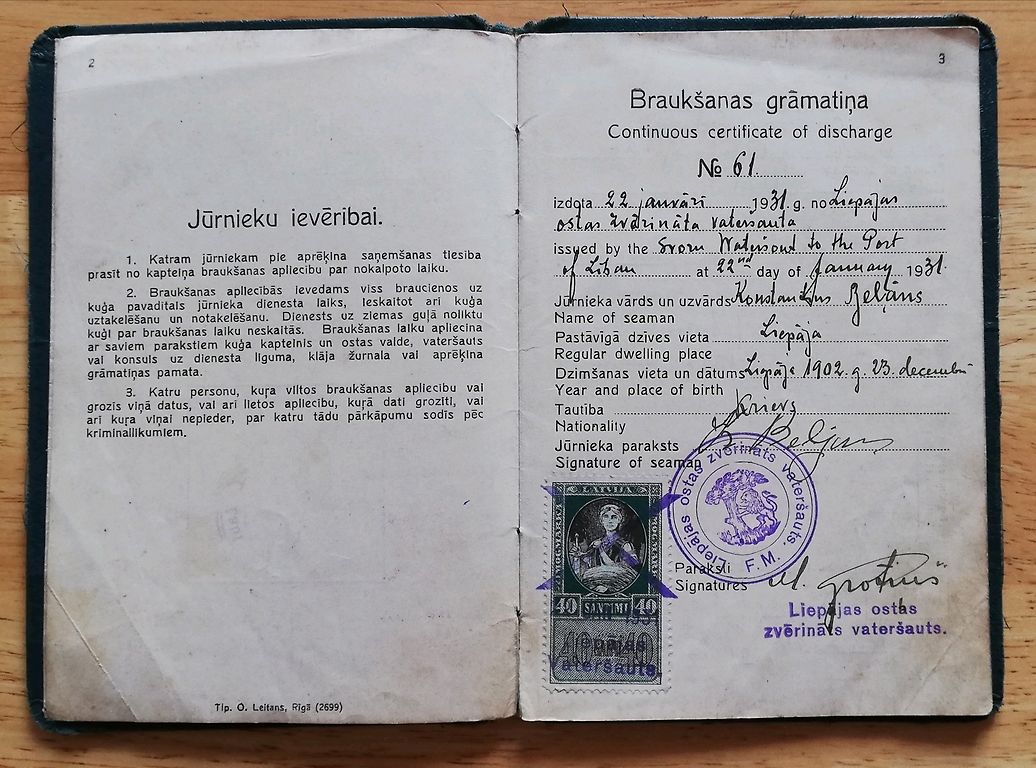 2
Jūrnieku ievērībai.
1. Katram jūrniekam pie aprēķina saņemšanas tiesība
prasīt no kapteiņa braukšanas apliecību par nokalpoto laiku.
2. Braukšanas apliecībās ievedams viss braucienos uz
kuģa pavadītais jūrnieka dienesta laiks, ieskaitot arī kuģa
uztakelēšanu un notakelēšanu. Dienests uz ziemas guļā noliktu
kuģi par braukšanas laiku neskaitās. Braukšanas laiku apliecina
ar saviem parakstiem kuģa kapteinis un ostas valde, vateršauts
vai konsuls uz dienesta līguma, klāja žurnala vai aprēķina
grāmatiņas pamata.
3. Katru personu, kuŗa viltos braukšanas apliecību vai
grozīs viņā datus, vai arī lietos apliecību, kuŗā dati grozīti, vai
arī kuŗa viņai nepieder, par katru tādu pārkāpumu sodīs pēc
kriminallikumiem.
Tip. O. Leitans, Rīgā (2699)
3
Braukšanas grāmatiņa
Continuous certificate of discharge
№ 61
izdota 22 janvārī 1931. g. no Liepājas
ostas zvērināta vateršauta
issued by the Sworn Watershout to the Port
of Libau at 22nd day of January 1931
Jūrnieka vārds un uzvārds Konstantins Beļāns
Name of seaman
Pastāvīgā dzīves vieta Liepāja
Regular dwelling place
Dzimšanas vieta un datums Liepāja 1902. g. 23. decembrī
Year and place of birth
Tautība Krievs
Nationality
Jūrnieka paraksts K. Beljans
Signature of seaman
Liepājas ostas zvērināts vateršauts.
F. M.
LATVIJA
40 SANTIMI 40
Liepājas
Vateršauts
Paraksti
Signatures
Liepājas ostas
zvērināts vateršauts.